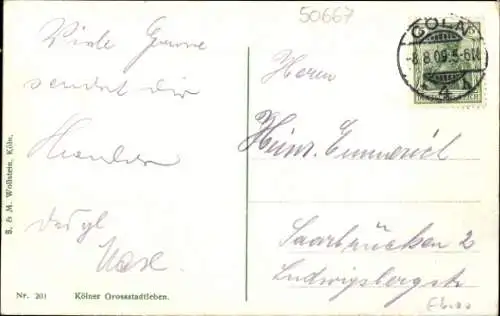 50667
CÖLN
-8.8.09.5-6N.
4
Viele Grüsse
sendet dir
desgl
Herrn
Heinr. Emmerich
Saarbrücken 2
Ludwigsbergstr
S. & M. Wollstein, Köln.
Nr. 201 Kölner Grossstadtleben.